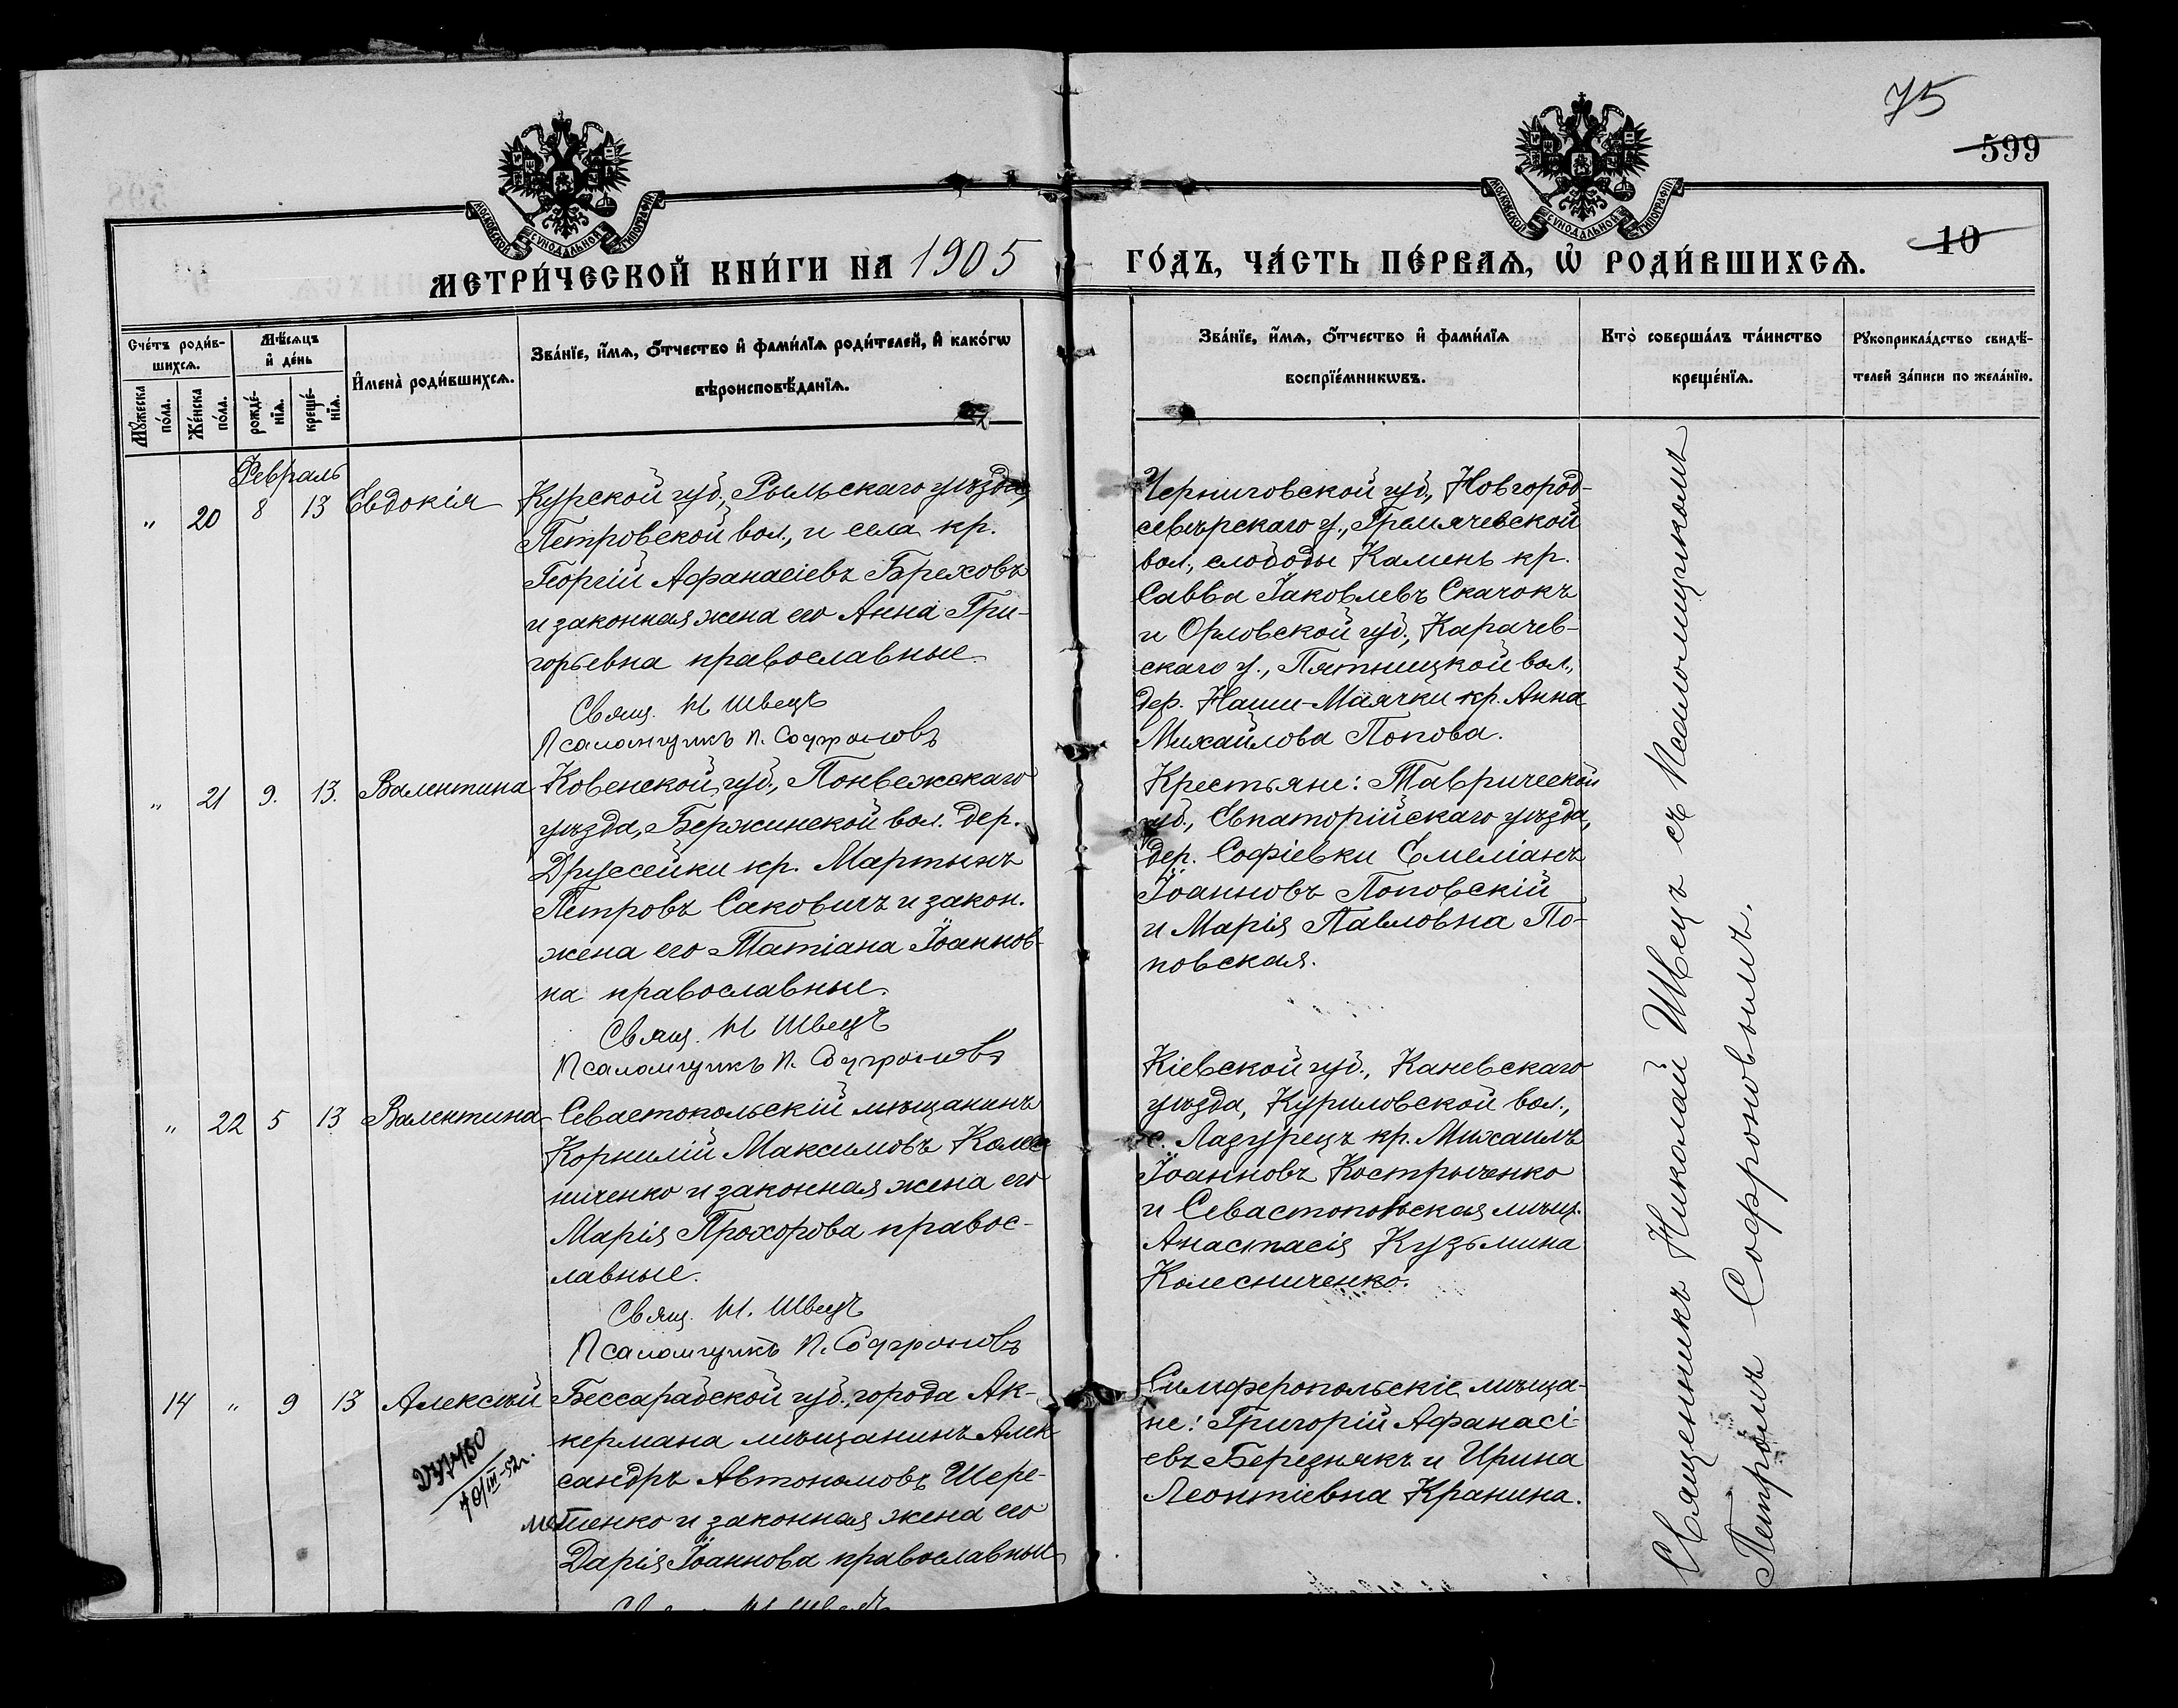 75
599
10
МОСКОВСКОЙ СѴНОДАЛЬНОЙ ТИПОГРАФІИ
МОСКОВСКОЙ СѴНОДАЛЬНОЙ ТИПОГРАФІИ
МЕТРИ́ЧЕСКОЙ КНИ́ГИ НА 1905 ГО́ДЪ, ЧА́СТЬ ПЕ́РВАѦ, Ѡ҆ РОДИ́ВШИХСѦ.
Сче́тъ роди́в-
шихсѧ.
Мꙋ́жеска по́ла.
Же́нска по́ла.
Мѣ́сѧцъ
и҆ де́нь
рожде́-
нїѧ.
креще́-
нїѧ.
И҆мена̀ роди́вшихсѧ.
Зва́нїе, и҆́мѧ, ѻ҆́тчество и҆ фами́лїѧ роди́телей, и҆ како́гѡ
вѣроисповѣ́данїѧ.
Зва́нїе, и҆́мѧ, ѻ҆́тчество и҆ фами́лїѧ
воспрїе́мникѡвъ.
Кто̀ соверша́лъ та́инство
креще́нїѧ.
Рꙋкоприкла́дство свидѣ́-
телей за́писи по жела́нїю.
Февраль
" 20 8 13 Евдокія
Курской губ., Рыльскаго уѣзда,
Петровской вол., и села кр.
Георгій Афанасіевъ Бреховъ
и законная жена его Анна Гри-
горьевна православные.
Свящ. Н Швецъ
Псаломщикъ П. Софроновъ
Черниговской губ., Новгород-
сѣверскаго у., Гремячевской
вол., слободы Камень кр.
Савва Іаковлевъ Скачокъ
и Орловской губ., Карачев-
скаго у., Пятницкой вол.,
дер. Наши-Маячки кр. Анна
Михайлова Попова.
" 21 9. 13. Валентина
Ковенской губ., Понвежскаго
уѣзда, Бержинской вол. дер.
Друссейки кр. Мартынъ
Петровъ Саковичъ и закон.
жена его Татіана Іоаннов-
на православные.
Свящ. Н Швецъ
Псаломщикъ П. Софроновъ
Крестьяне: Таврической
губ., Евпаторійскаго уѣзда,
дер. Софіевки Емеліанъ
Іоанновъ Поповскій
и Марія Павловна По-
повская.
" 22 5 13 Валентина
Севастопольскій мѣщанинъ
Корнилій Максимовъ Колес
ниченко и законная жена его
Марія Прохорова правос-
лавные.
Свящ. Н. Швецъ
Псаломщикъ П. Софроновъ
Кіевской губ., Каневскаго
уѣзда, Куриловской вол.,
с. Лазурецъ кр. Михаилъ
Іоанновъ Костриченко
и Севастопольская мѣщ.
Анастасія Кузьмина
Колесниченко.
14 " 9 13 Алексѣй
10/III-52г.
Бессарабской губ. города Ак-
кермана мѣщанинъ Алек
сандръ Автономовъ Шере-
метенко и законная жена его
Дарія Іоаннова православные
Симферопольскіе мѣща-
не: Григорій Афанасі-
евъ Березнякъ и Ирина
Леонтіевна Кранина.
Священникъ Николай Швецъ съ Псаломщикомъ
Петромъ Софроновымъ.